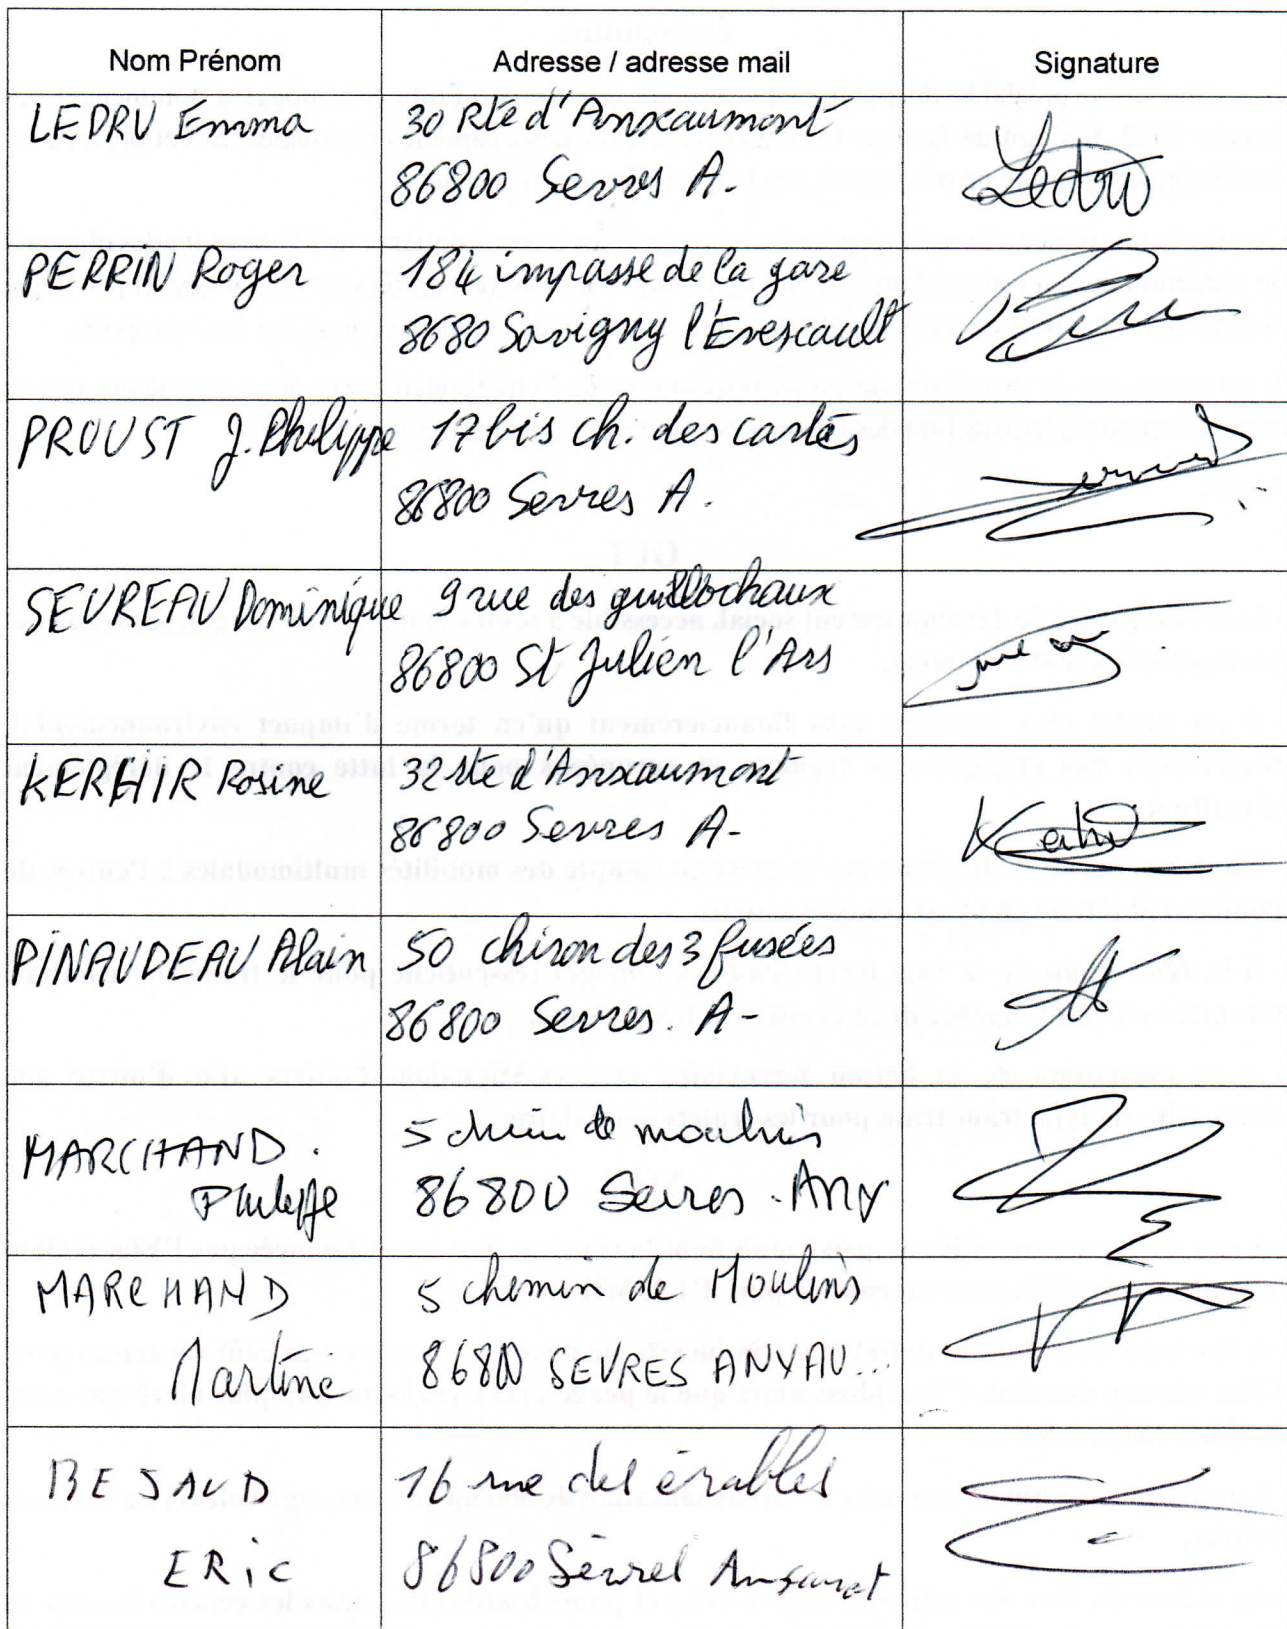 Nom Prénom
Adresse / adresse mail
Signature
LEDRU Emma
30 Rte d'Anxaumont
86800 Sevres A.
Ledru
PERRIN Roger
184 impasse de la gare
8680 Savigny l'Evescault
PROUST J. Philippe
17 bis ch. des cartes
86800 Sevres A.
SEVREAU Dominique
9 rue des guillochaux
86800 St Julien l'Ars
KERFAIR Rosine
32 rte d'Anxaumont
86800 Sevres A-
PINAUDEAU Alain
50 chiron des 3 fusées
86800 Sevres. A-
MARCHAND.
Philippe
5 chemin de moulins
86800 Sevres. Anx
MARCHAND
Martine
5 chemin de Moulins
86800 SEVRES ANXAU.
BESAUD
ERic
16 rue des érables
86800 Sèvres